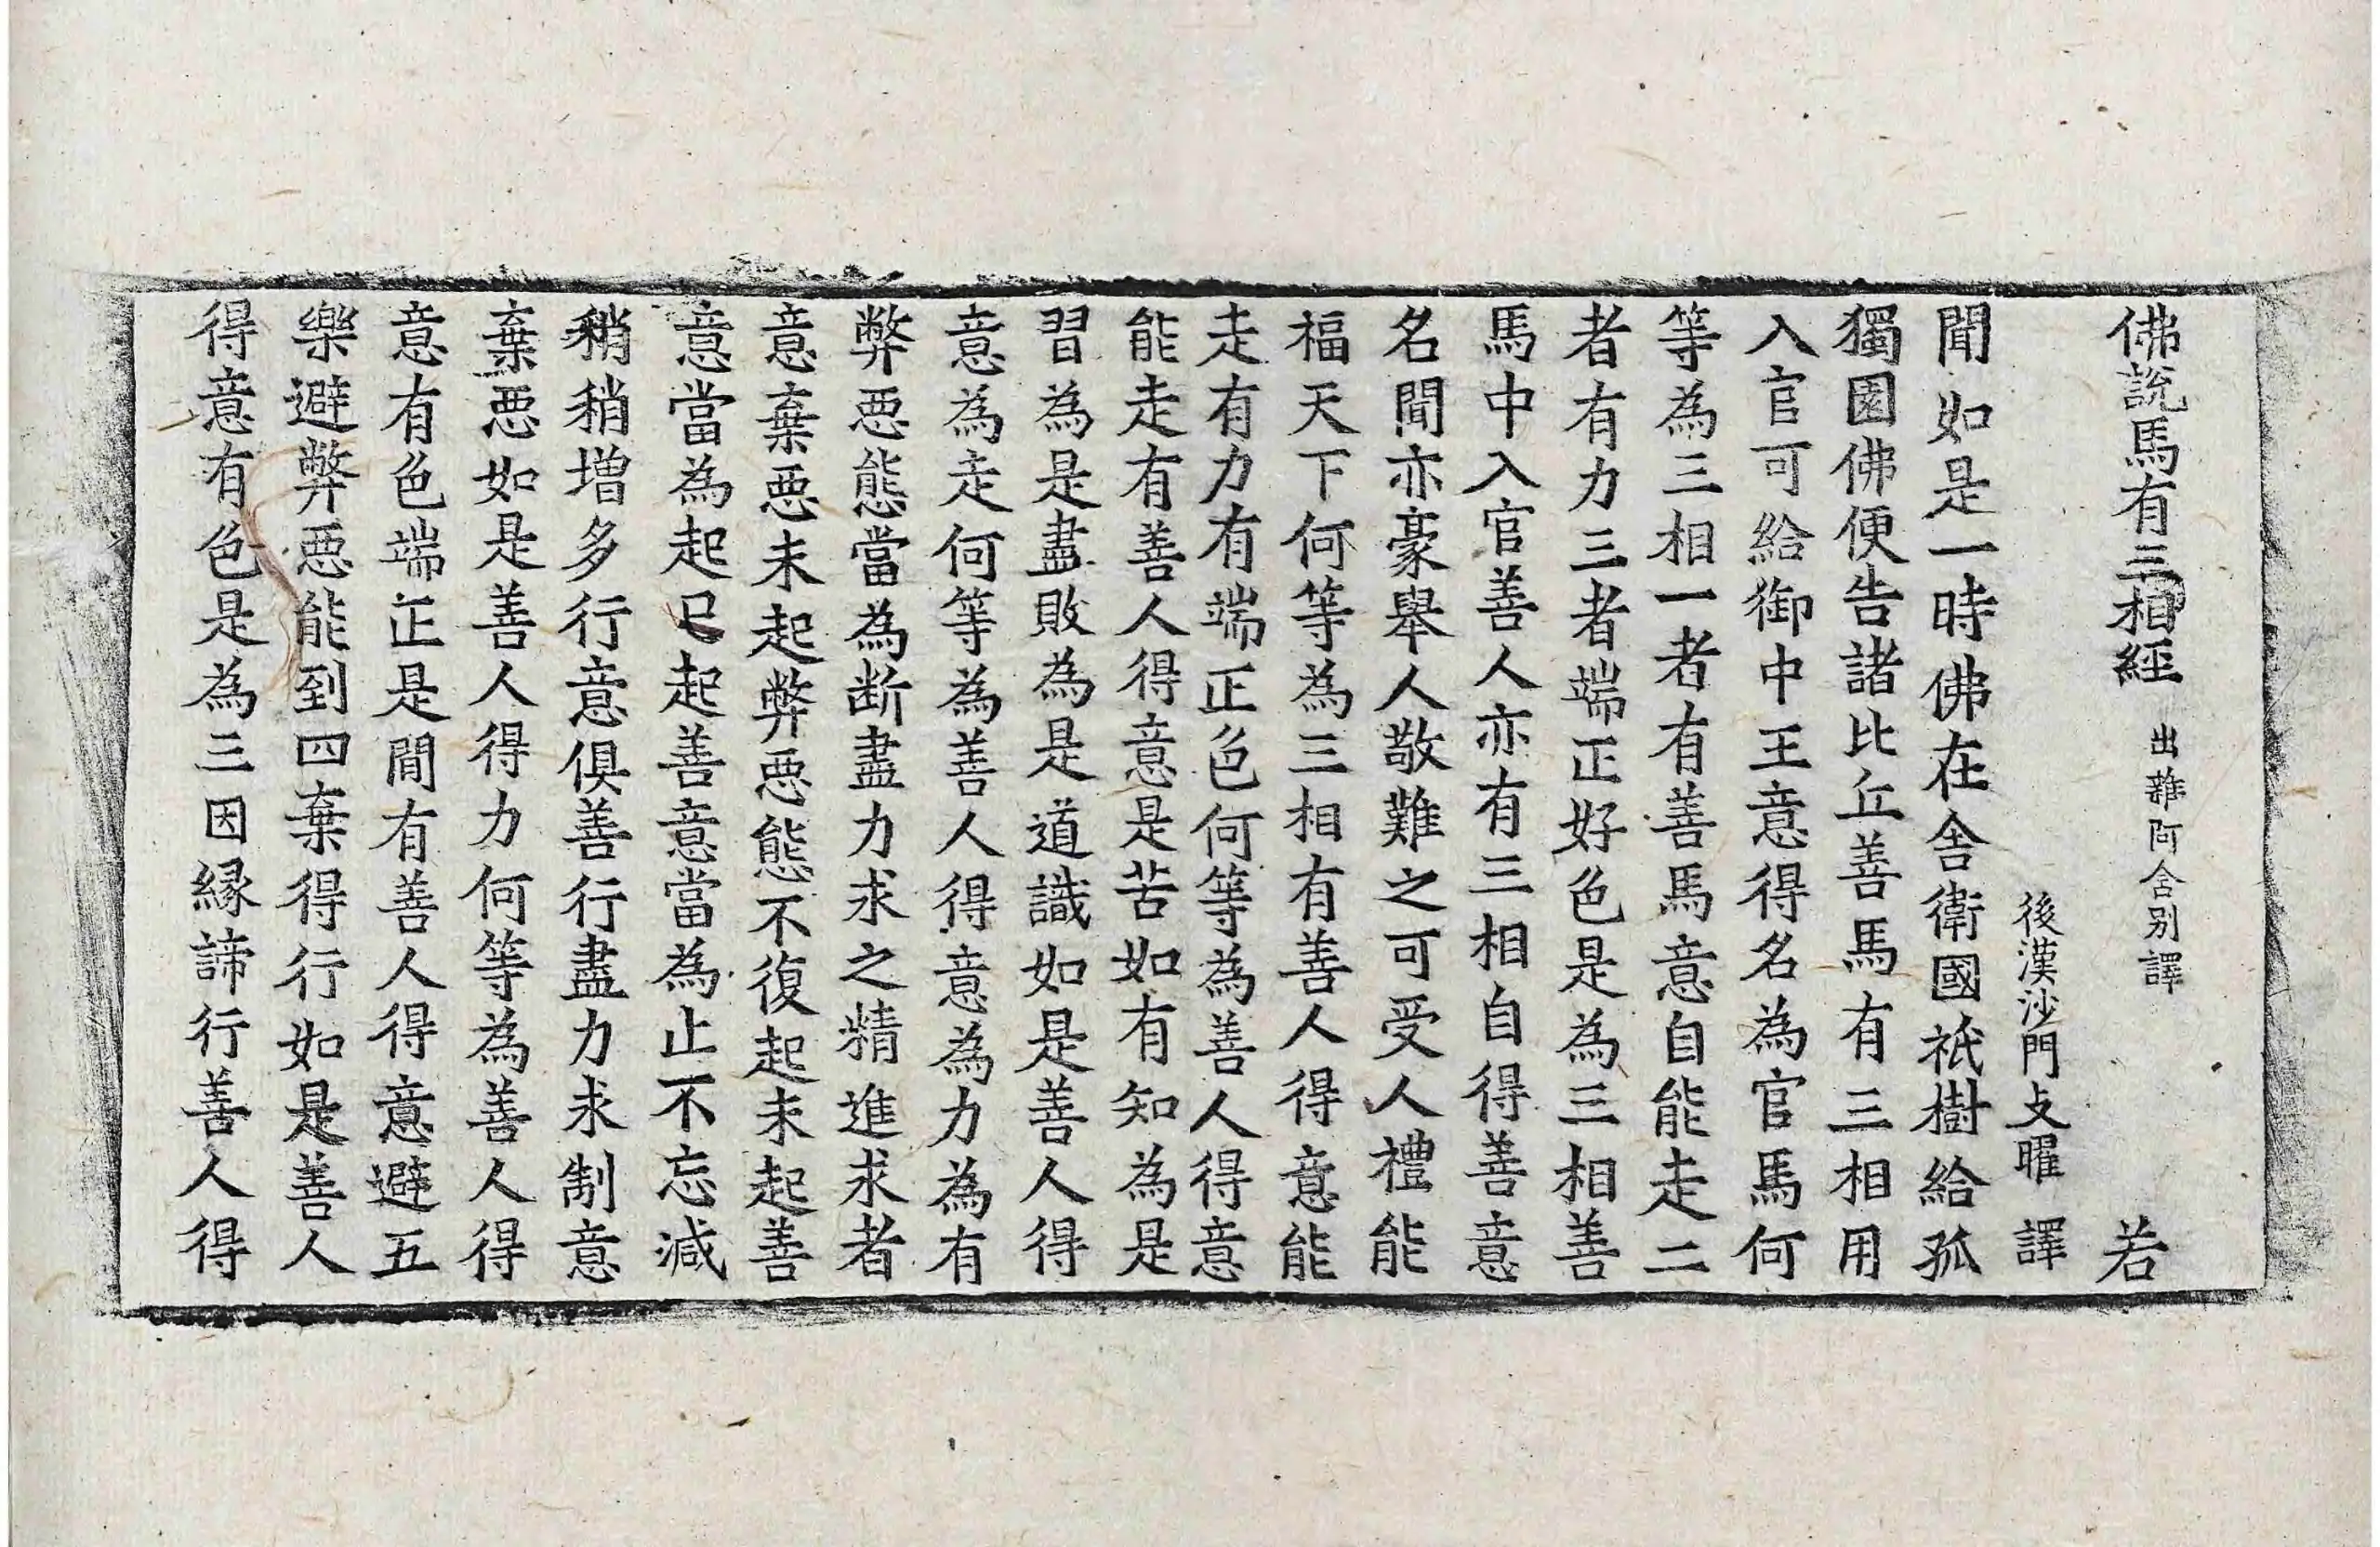 佛說馬有三相經 出雜阿含別譯 若
後漢沙門支曜 譯
聞如是一時佛在舍衛國祇樹給孤
獨園佛便告諸比丘善馬有三相用
入官可給御中王意得名為官馬何
等為三相一者有善馬意自能走二
者有力三者端正好色是為三相善
馬中入官善人亦有三相自得善意
名聞亦豪舉人敬難之可受人禮能
福天下何等為三相有善人得意能
走有力有端正色何等為善人得意
能走有善人得意是苦如有知為是
習為是盡敗為是道識如是善人得
意為走何等為善人得意為力為有
弊惡態當為断盡力求之精進求者
意棄惡未起弊惡態不復起未起善
意當為起已起善意當為止不忘減
稍稍增多行意俱善行盡力求制意
棄惡如是善人得力何等為善人得
意有色端正是閒有善人得意避五
樂避弊惡能到四棄得行如是善人
得意有色是為三因緣諦行善人得